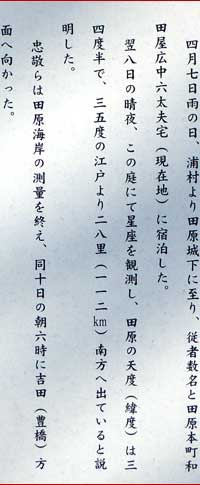 四月七日雨の日、浦村より田原城下に至り、従者数名と田原本町和
田屋広中六太夫宅（現在地）に宿泊した。
翌八日の晴夜、この庭にて星座を観測し、田原の天度（緯度）は三
四度半で、三五度の江戸より二八里（一一二km）南方へ出ていると説
明した。
忠敬らは田原海岸の測量を終え、同十日の朝六時に吉田（豊橋）方
面へ向かった。